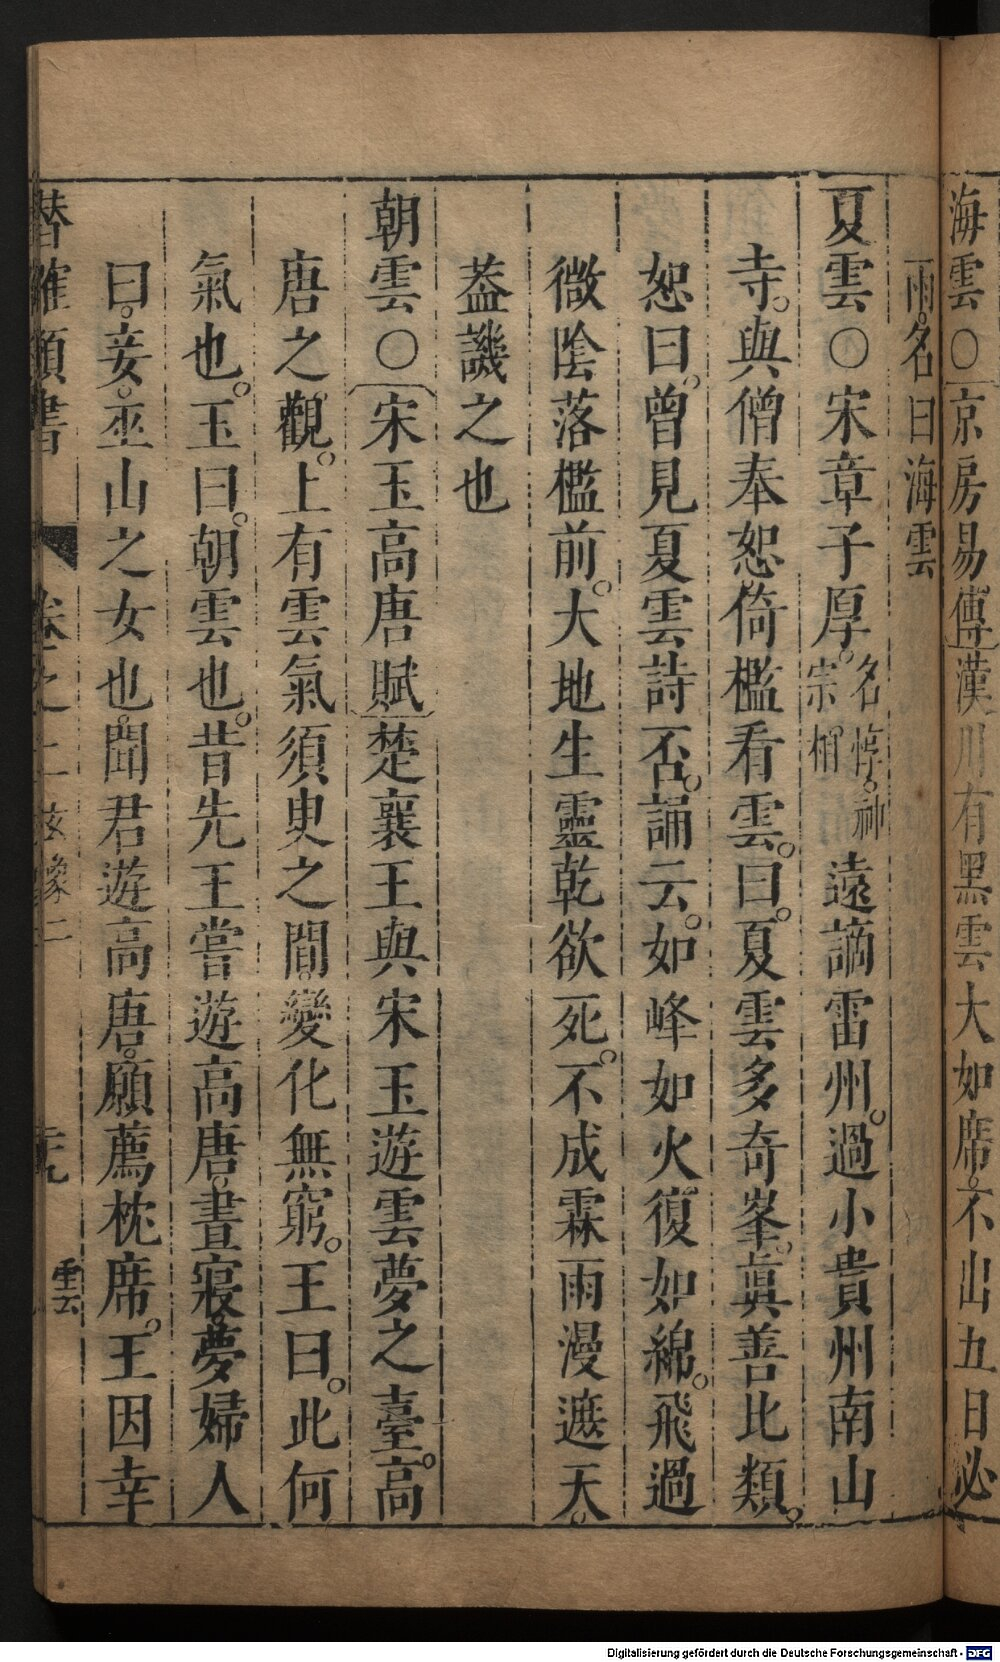 海雲○京房易傳漢川有黑雲大如席不出五日必
雨。名曰海雲
夏雲○宋章子厚。名惇。神宗相遠謫雷州。過小貴州南山
寺。與僧奉恕倚檻看雲。曰。夏雲多奇峯。眞善比類。
恕曰。曾見夏雲詩否。誦云。如峰如火復如綿。飛過
微陰落檻前。大地生靈乾欲死。不成霖雨漫遮天。
葢譏之也
朝雲○宋玉高唐賦楚襄王與宋玉遊雲夢之臺。高
唐之觀。上有雲氣須臾之間。變化無窮。王曰。此何
氣也。玉曰。朝雲也。昔先王嘗遊高唐。晝寢。夢婦人
曰。妾。巫山之女也。聞君遊高唐。願薦枕席。王因幸
類書 卷之二 玄象二 雲
Digitalisierung gefördert durch die Deutsche Forschungsgemeinschaft - DFG